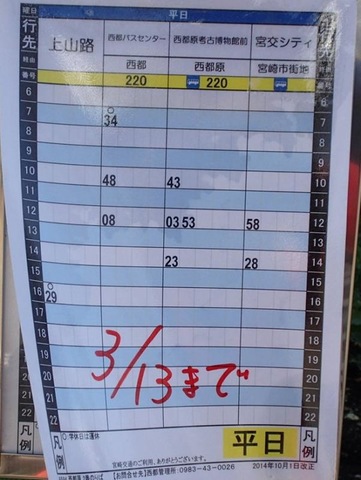 曜日 平日
行先 上山路 西都バスセンター 西都原考古博物館前 宮交シティ 行先
経由 西都 西都原 宮崎市街地 経由
番号 220 220 番号
6 6
7 34 7
8 8
9 9
10 48 43 10
11 11
12 08 03 53 58 12
13 13
14 23 28 14
15 15
16 29 16
17 17
18 18
19 19
20 20
21 21
22 22
3/13まで
凡例 ○:学休日は運休 凡例
宮崎交通のご利用、ありがとうございます。
平日
【お問合せ先】西都管理所:0983-43-0026 2014年10月1日改正